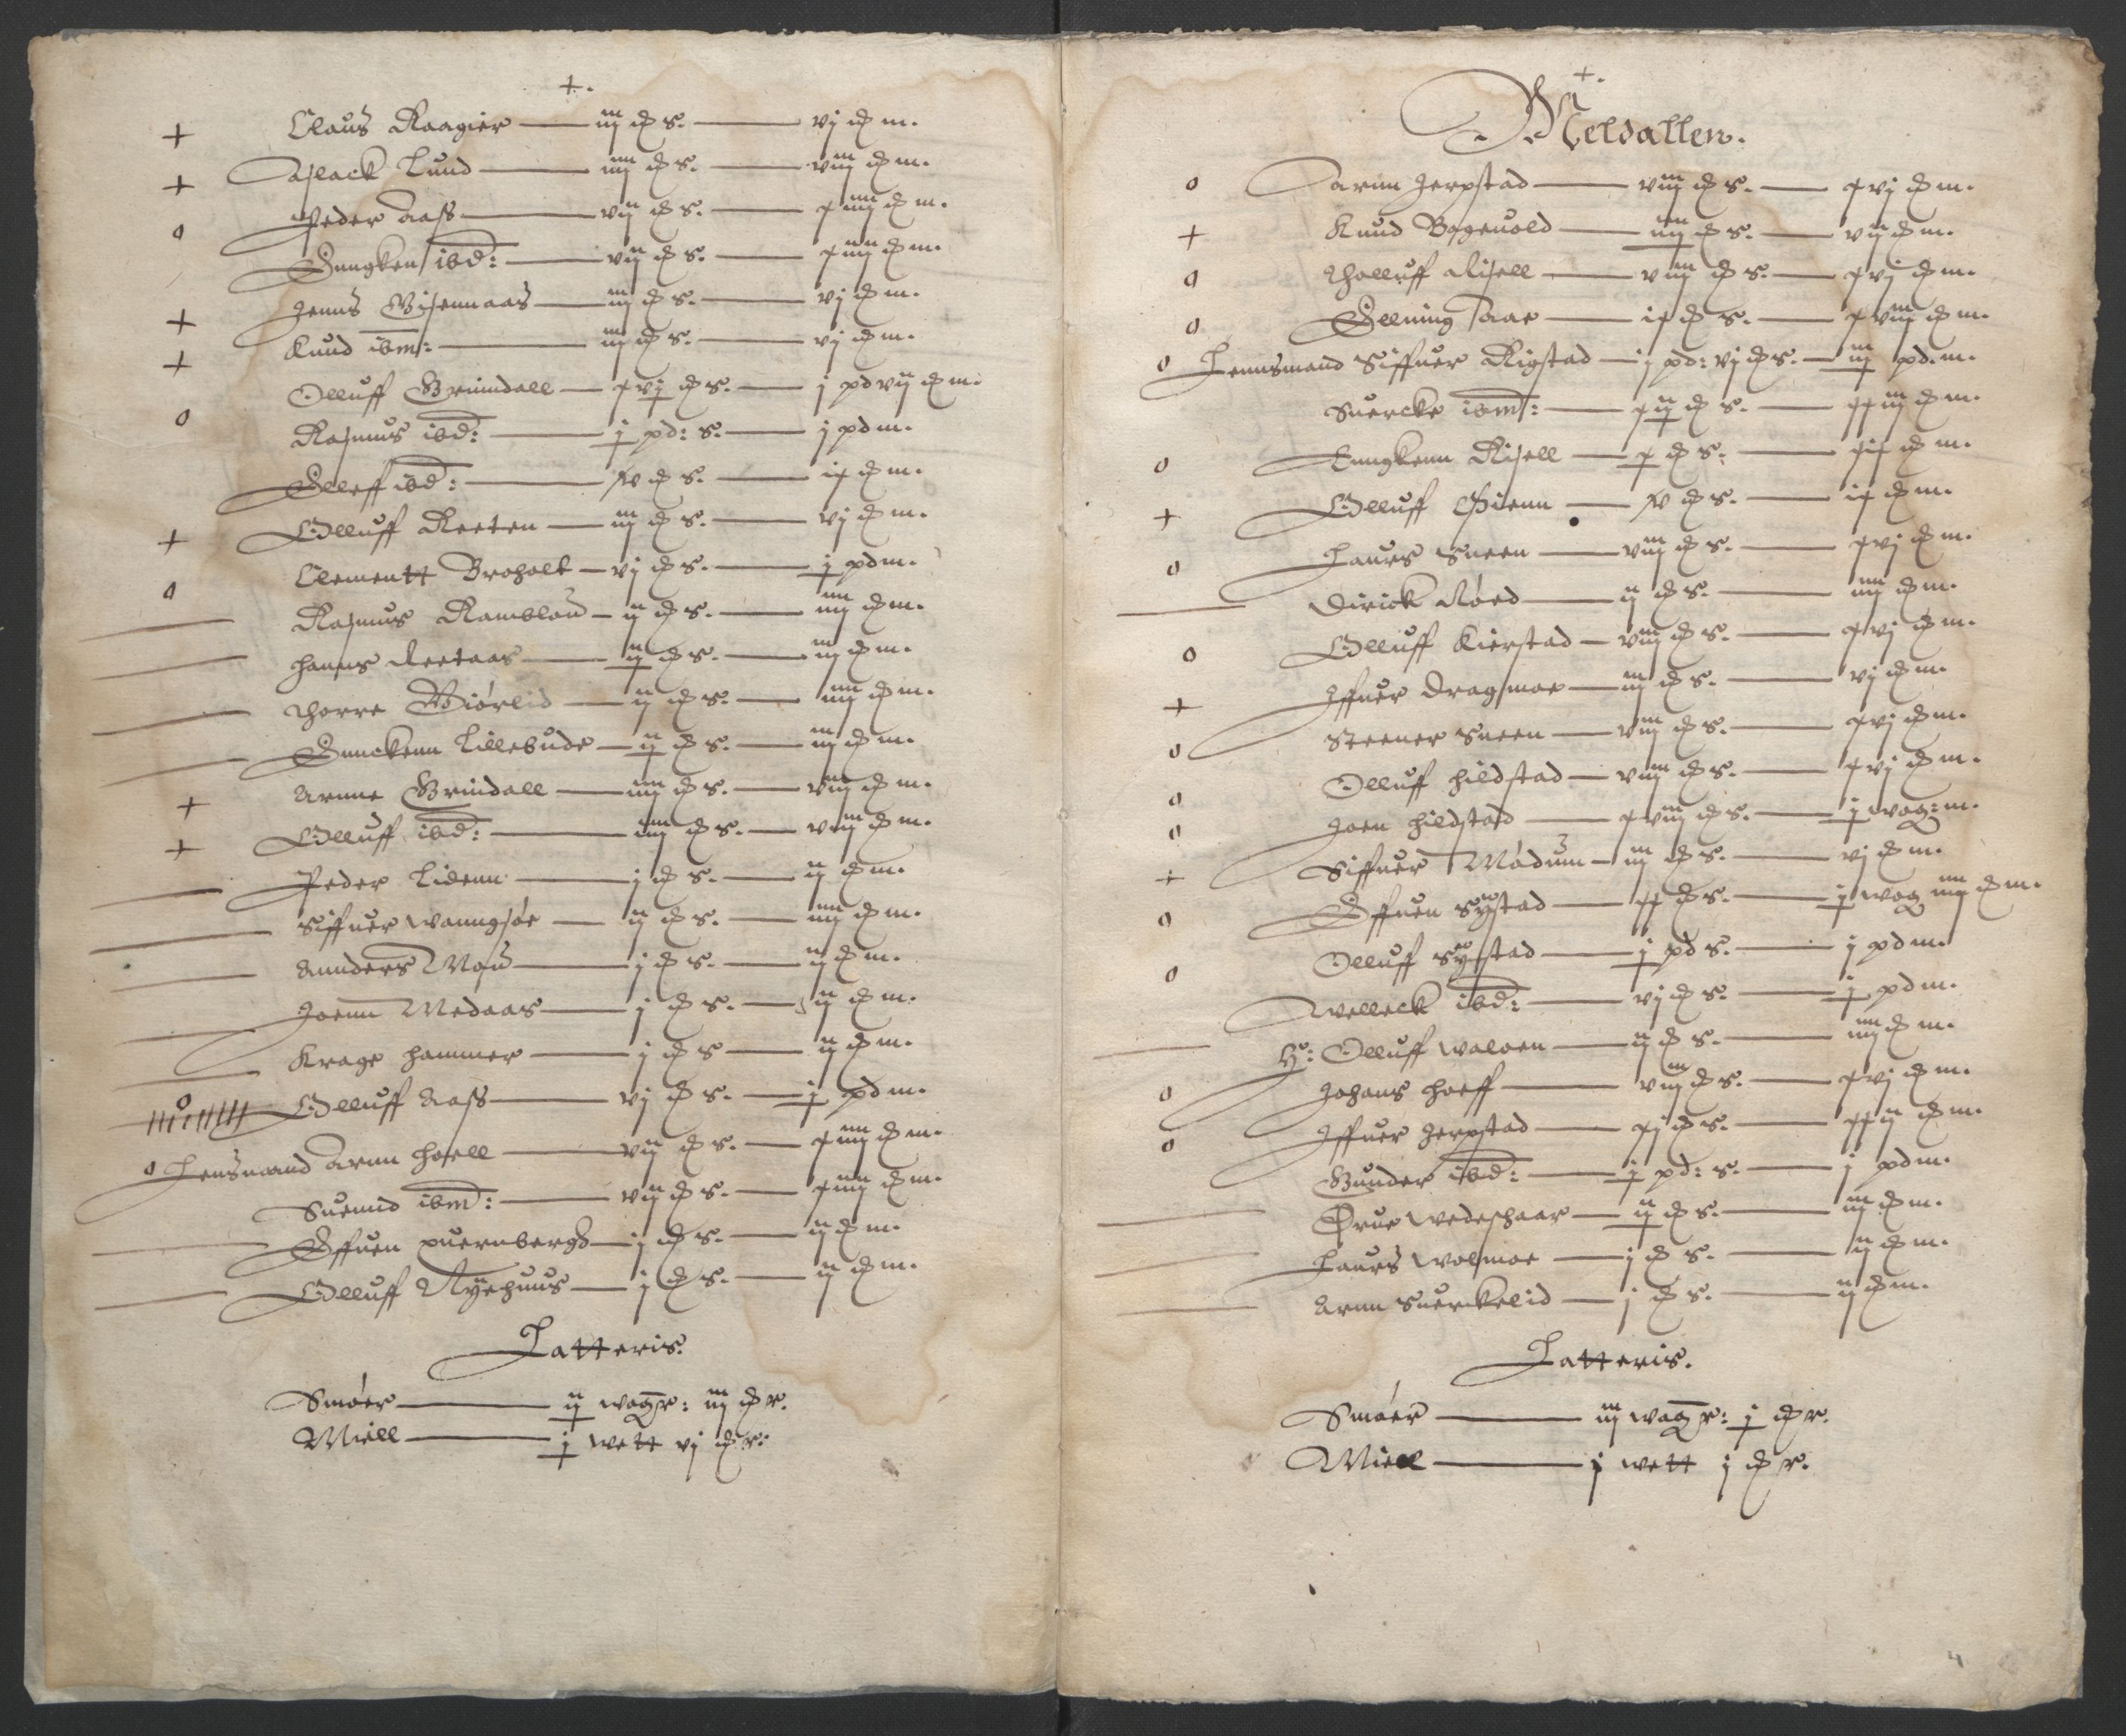 +.
+ Claus Raagier — iij ℔ s. — vj ℔ m.
+ Aslack Lund — iiij ℔ s. — viij ℔ m.
o Peder Aass — vij ℔ s. — xiiij ℔ m.
Gungken ibd: — vij ℔ s. — xiiij ℔ m.
+ Jenns Gisennaas — iij ℔ s. — vj ℔ m.
+ Knud ibm: — iij ℔ s. — vj ℔ m.
Olluff Grinndall — xvj ℔ s. — j pd vij ℔ m.
o Rasmus ibd: — j pd: s. — j pd m.
Elleff ibd: — v ℔ s. — ix ℔ m.
+ Olluff Reeten — iij ℔ s. — vj ℔ m.
o Clementt Broholt — vj ℔ s. — j pd m.
Rasmus Ramblou — ij ℔ s. — iiij ℔ m.
Hanns Reetaas — ij ℔ s. — iij ℔ m.
Thorre Biörlid — ij ℔ s. — iiij ℔ m.
Gunckenn Lillebude — ij ℔ s. — iij ℔ m.
+ Arnne Grindall — iiij ℔ s. — viij ℔ m.
+ Olluff ibd: — iiij ℔ s. — viij ℔ m.
Peder Lidenn — j ℔ s. — ij ℔ m.
Siffuer Wanngsöe — ij ℔ s. — iiij ℔ m.
Annders Mou — j ℔ s. — ij ℔ m.
Joenn Medaas — j ℔ s. — ij ℔ m.
Krage Hammer — j ℔ s — ij ℔ m.
o Olluff Aass — vj ℔ s. — j pd m.
o Lensmand Arnn Hoell — vij ℔ s. — xiiij ℔ m.
Suennd ibm: — vij ℔ s. — xiiij ℔ m.
Effuen Quernbergd — j ℔ s. — ij ℔ m.
Olluff Nyehuus — j ℔ s. — ij ℔ m.
Latteris.
Smöer — ij wogr: iij ℔ r.
Miell — j wett vj ℔ r:
+.
Meldallen.
o Arnn Jerpstad — viij ℔ s. — xvj ℔ m.
+ Knud Bogeuold — iiij ℔ s. — vij ℔ m.
o Tholluff Risell — viij ℔ s. — xvj ℔ m.
o Elling Aae — ix ℔ s. — xviij ℔ m.
o Lennsmand Siffuer Rigstad — j pd: vj ℔ s. — iij pd. m.
Suercke ibm: — xij ℔ s. — xxiij ℔ m.
o Enngkenn Risell — x ℔ s. — xix ℔ m.
+ Olluff — v ℔ s. — ix ℔ m.
o Laurs Sneen — viij ℔ s. — xvj ℔ m.
Dirick Röed — ij ℔ s. — iiij ℔ m.
o Olluff Kierstad — viij ℔ s. — xvj ℔ m.
+ Iffuer Dragmoe — iij ℔ s. — vj ℔ m.
o Steener Sneen — viij ℔ s. — xvj ℔ m.
o Olluff Hildstad — viij ℔ s. — xvj ℔ m.
o Joen Hildstad — xviij ℔ s. — j wog: m.
+ Siffuer Modum — iij ℔ s. — vj ℔ m.
o Effuen Systad — xx ℔ s. — j wog iiij ℔ m.
o Olluff Systad — j pd s. — j pd m.
Welleck ibd: — vj ℔ s. — j pd m.
Hr: Olluff Waloen — ij ℔ s. — iiij ℔ m.
o Johans Hoeff — viij ℔ s. — xvj ℔ m.
o Iffuer Jerpstad — xj ℔ s. — xxij ℔ m.
Gunder ibd: — j pd: s. — j pd m.
Orue Wedeshaar — ij ℔ s. — iij ℔ m.
Laurs Wolmoe — j ℔ s. — ij ℔ m.
Arnn Suerckelid — j ℔ s. — ij ℔ m.
Latteris.
Smöer — iij wogr: j ℔ r.
Miell — j wett j ℔ r.